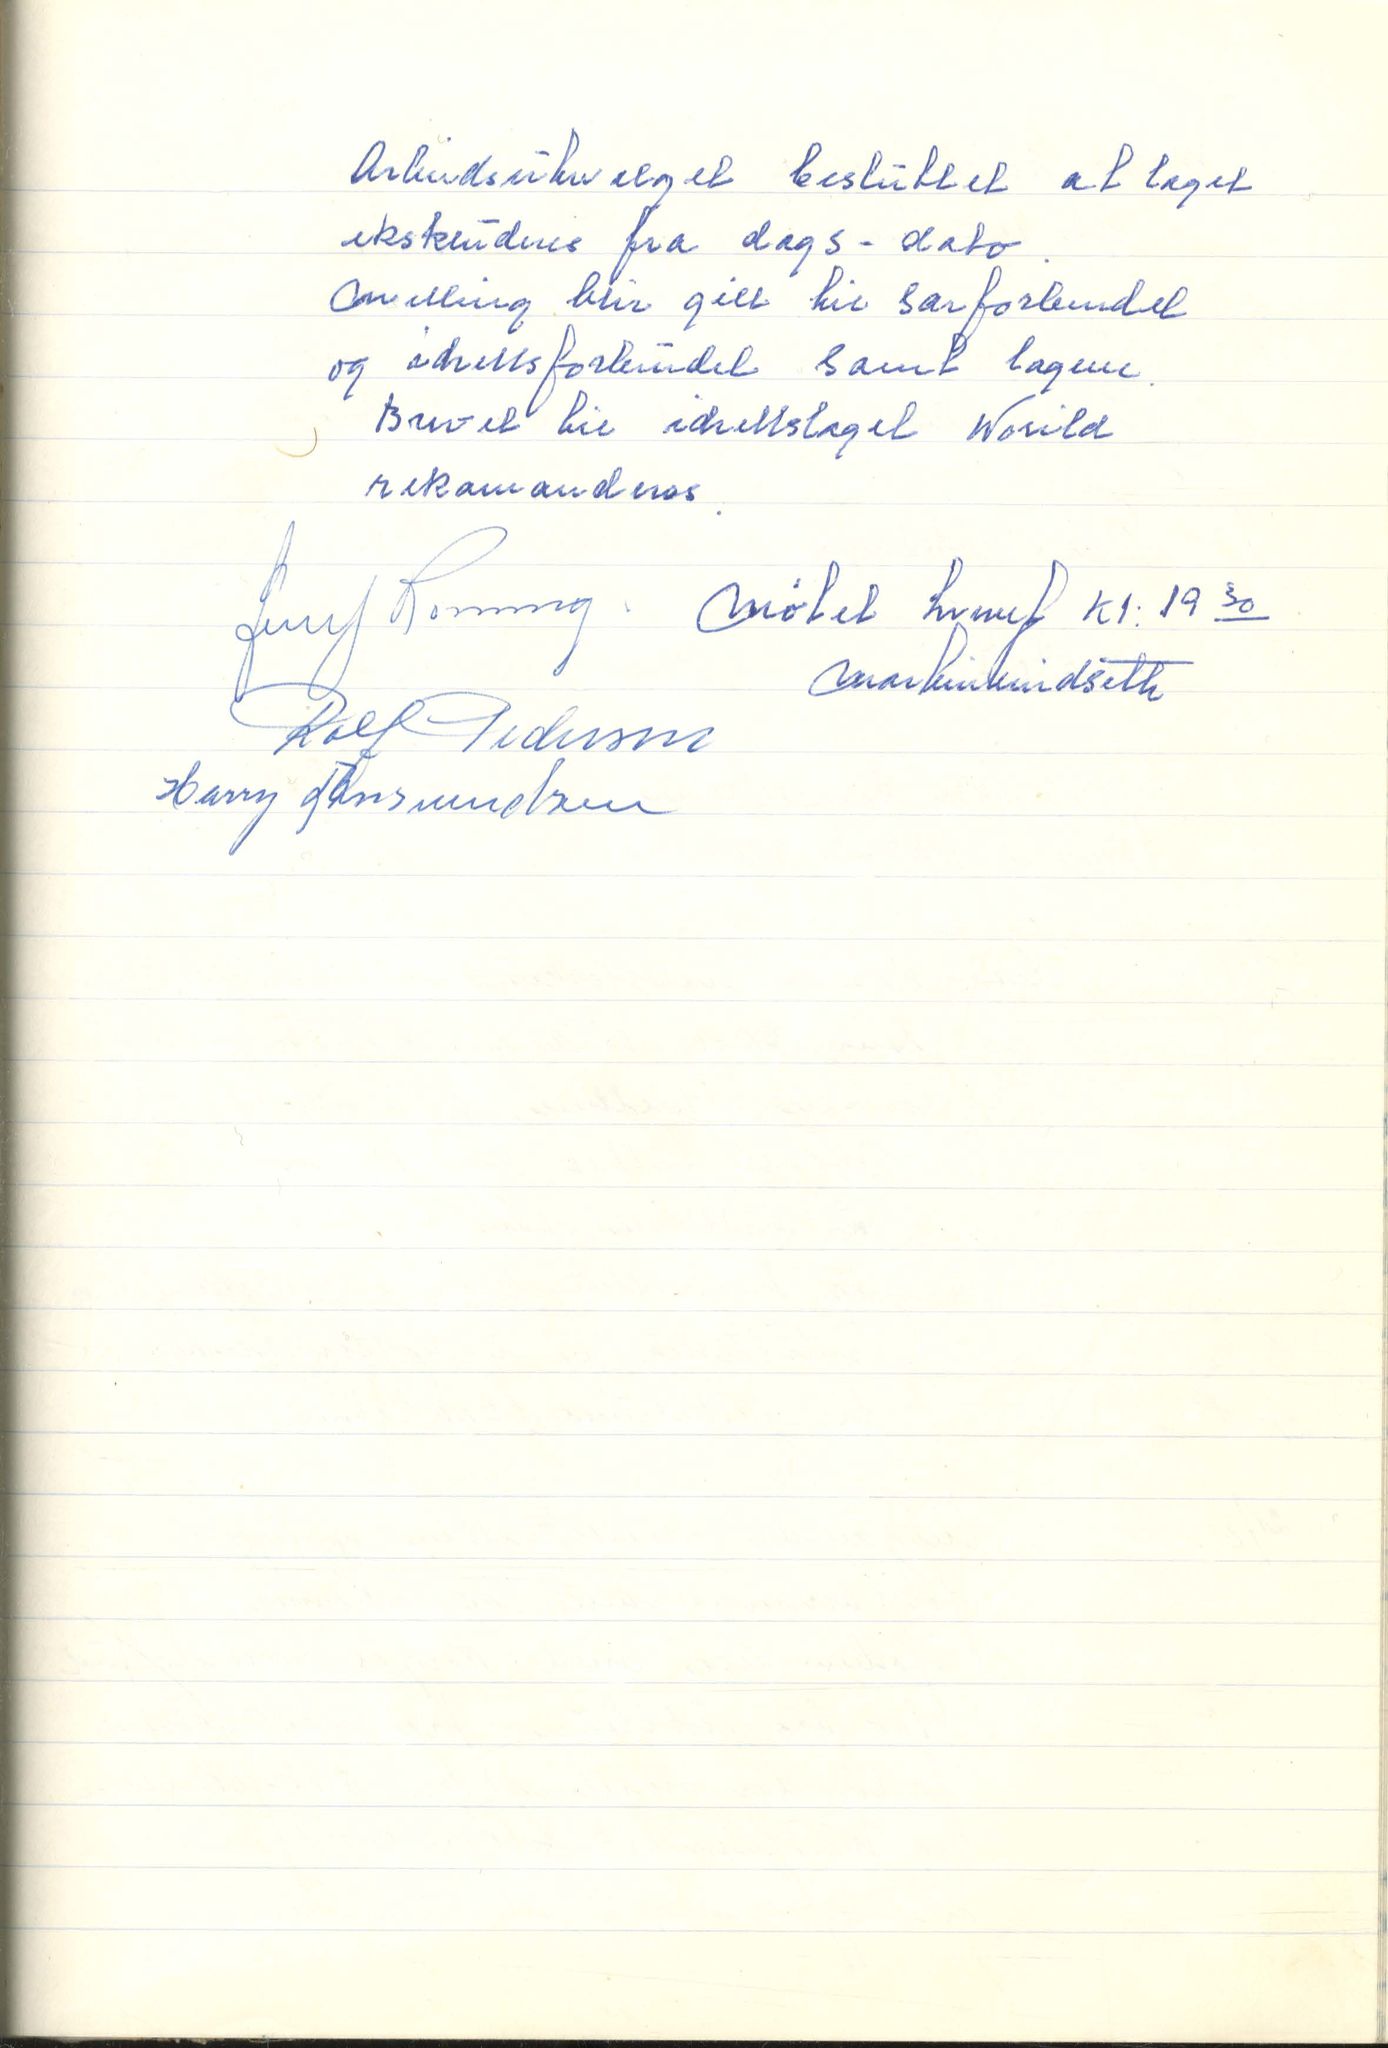 Arbeidsutvalget besluttet at laget
ekskluderes fra dags-dato.
Melling blir gitt til særforbundet
og idrettsforbundet samt lagene.
Brevet til idrettslaget World
rekomanderes.
Møtet hevet kl: 19 30
Rolf Pedersen
Harry